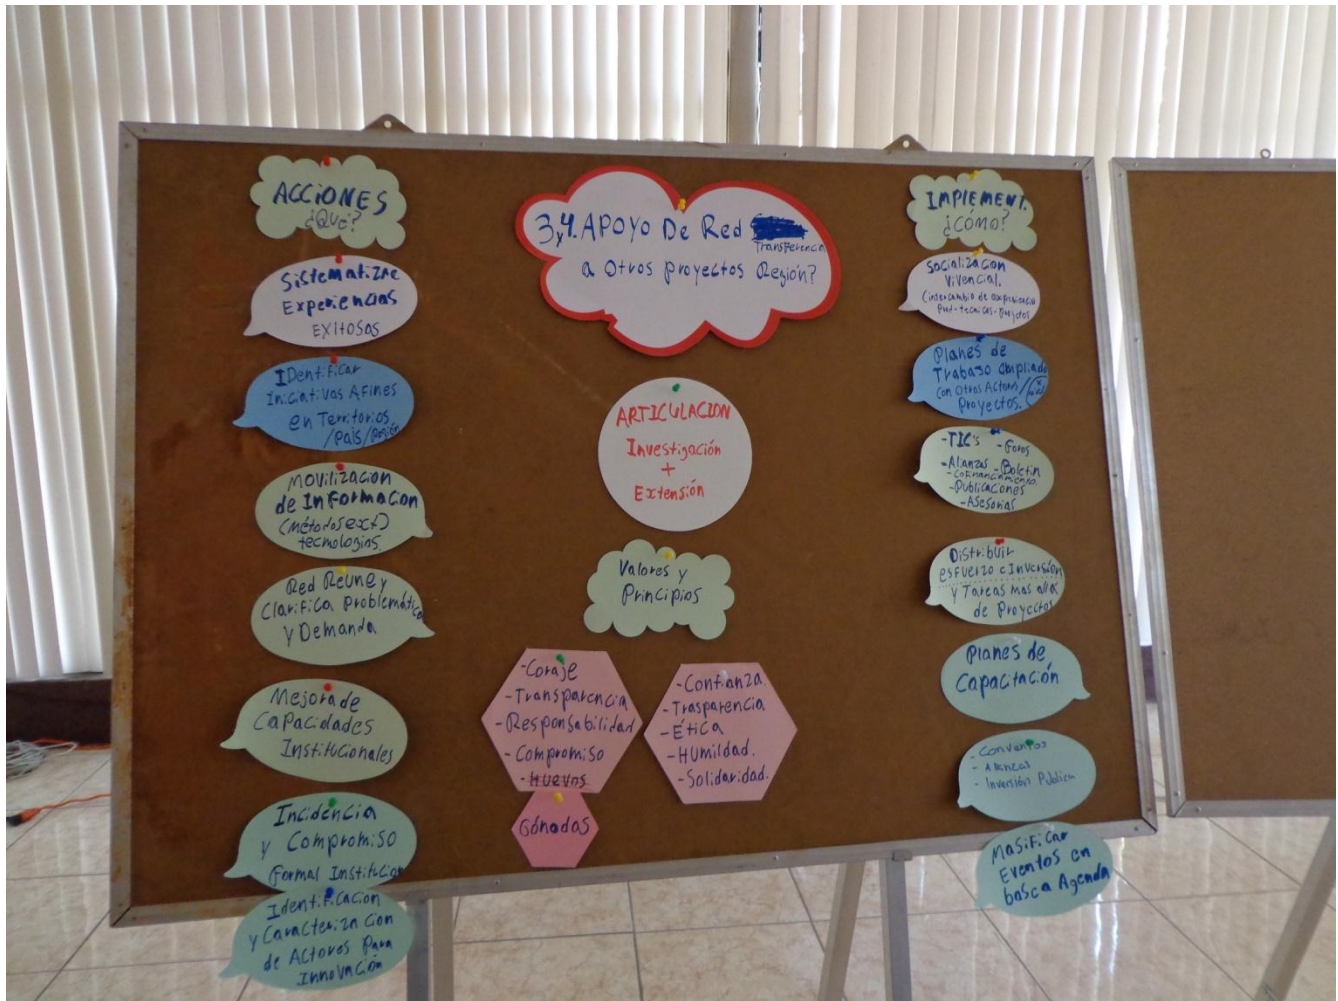 ACCIONES
¿Qué?
Sistematizae
Experiencias
EXITOSAS
IDentificar
Iniciativas Afines
en Territorios
/país/Región
Movilización
de Informacion
(Métodos ext)
tecnologías.
Red Reúne y
Clarifica problemática
y Demanda
Mejora de
Capacidades
Institucionales
Incidencia
y Compromiso
formal Institucion
Identificacion
y Caracterizacion
de Actores Para
Innovación
3y4. APOYO De Red
Transferencia
a Otros proyectos Región?
ARTICULACION
Investigación
+
Extensión
Valores y
Principios
-Coraje
-Transparencia
-Responsabilidad
-Compromiso
-Huevos
Gónadas
-Confianza
-Trasparencia
-Ética
-Humildad.
-Solidaridad.
IMPLEMENT.
¿Cómo?
Socialización
Vivencial.
(intercambio de experiencia
prod-tecnicos-proyectos
Planes de
Trabajo ampliado
con Otros Actores/
Proyectos.
-TIC's -Foros
-Alianzas -Boletin
-Cofinanciamiento.
-Publicaciones
-Asesorias
Distribuir
esfuerzo e Inversión
y Tareas mas allá
de Proyectos
Planes de
Capacitación
- Convenios
- Alianzas
- Inversión Publica
Masificar
Eventos en
basca Agenda